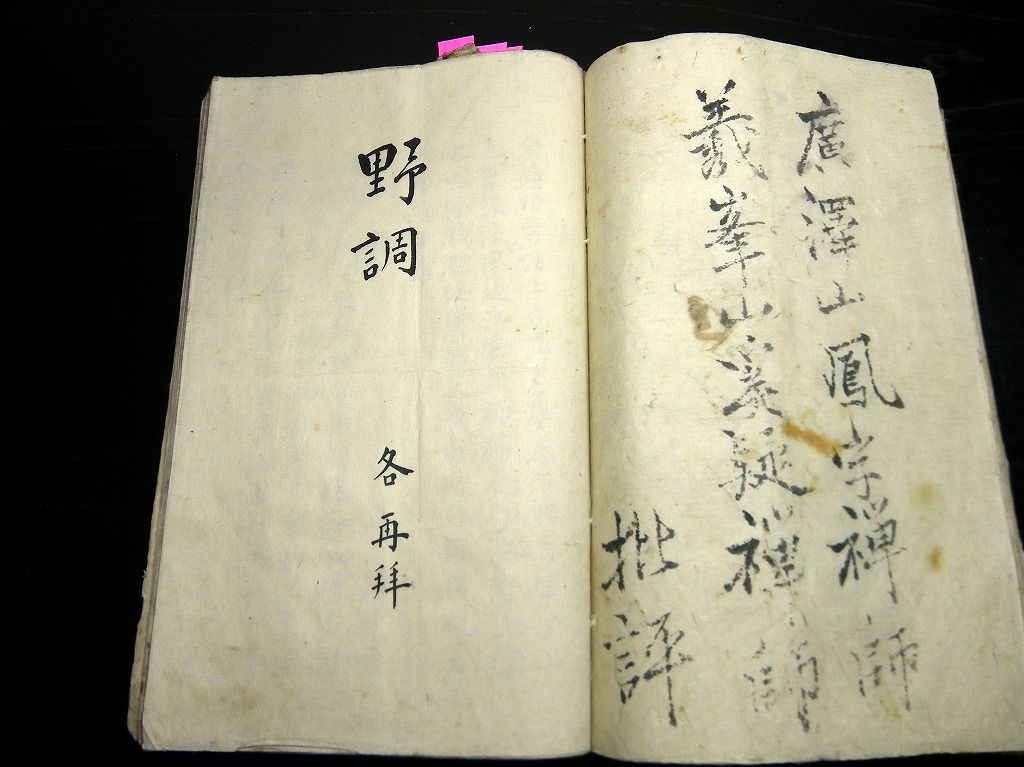 廣澤山鳳宗禅師
義峯山溪疑禅師
批評
野調
各再拜